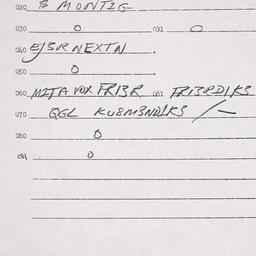 020 8 MOONTZG
030 0 031 0
040 EJ3RNEXTN .
050 0 .
060 MZTA VOX FRI3R 061 FRI3RDIKS
070 QGL KU8M3NDIKS /-
080 0
0